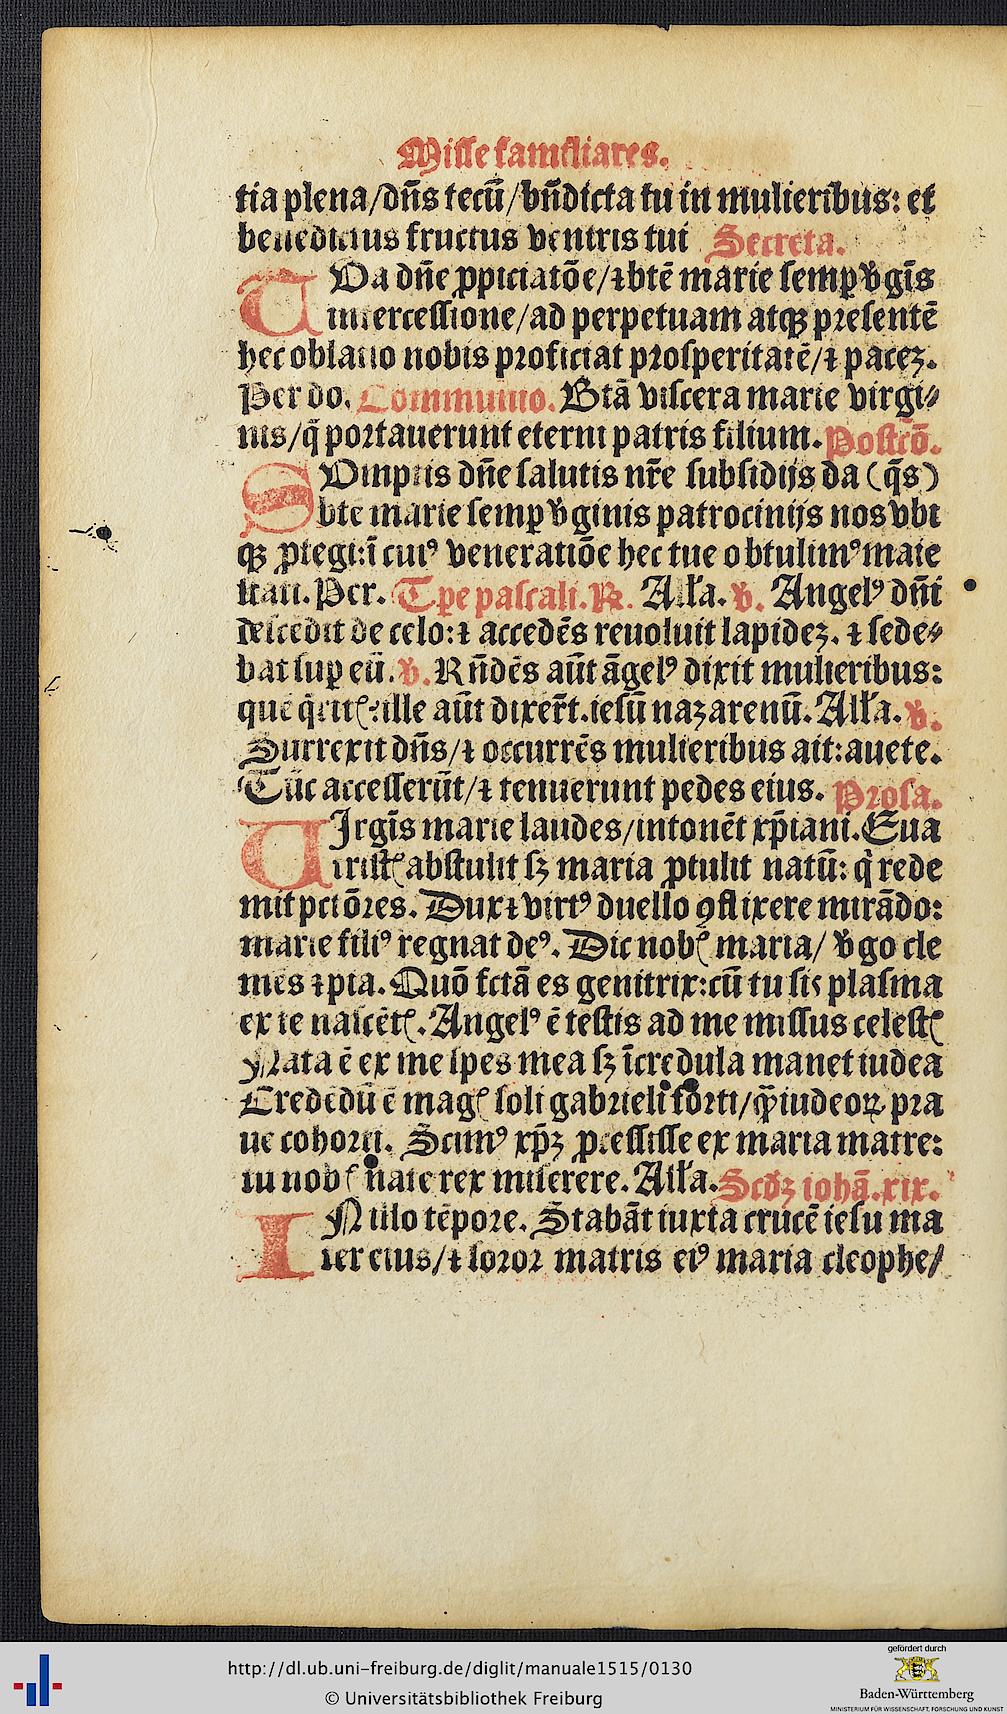 Misse familiares.
tia plena/dn̄s tecū/bn̄dicta tu in mulieribus: et
benedictus fructus ventris tui Secreta.
TVa dn̄e ꝓpiciatōe/⁊ btē marie semꝑ v̓gīs
intercessione/ad perpetuam atqꝫ presentē
hec oblatio nobis proficiat prosperitatē/⁊ pacez.
Per do. Communio. Btā viscera marie virgi⸗
nis/q̄ portauerunt eterni patris filium. Postcō.
SVmptis dn̄e salutis nr̄e subsidijs da (q̄s)
bte marie semꝑ v̓ginis patrocinijs nos vbi
qꝫ ꝓtegi:ī cuiꝰ veneratiōe hec tue obtulimꝰ maie
stati. Per. T.pe pascali. ℟. All'a. ℣. Angelꝰ dn̄i
descēdit de celo:⁊ accedēs reuoluit lapidez. ⁊ sede⸗
bat suꝑ eū. ℣. Rn̄dēs aūt āgelꝰ dixit mulieribus:
quē q̄rit̄?ille aūt dixer̄t.iesū nazarenū. All'a. ℣.
Surrexit dn̄s/⁊ occurrēs mulieribus ait: auete.
Tūc accesserūt/⁊ tenuerunt pedes eius. Prosa.
VIrgīs marie laudes/intonēt xp̄iani. Eua
tristꝭ abstulit sꝫ maria ꝓtulit natū: q̇ rede
mit pctōres. Dux ⁊ virtꝰ duello ꝯflixere mirādo:
marie filiꝰ regnat deꝰ. Dic nobꝭ maria/ v̓go cle
mēs ⁊ pia. Quō fctā es genitrix:cū tu sis plasma
ex te nascētꝭ. Angelꝰ ē testis ad me missus celestꝭ
Nata ē ex me spes mea sꝫ īcredula manet iudea
Credēdū ē magꝭ soli gabrieli forti/q̄ȝ iudeoꝝ pra
ue cohorti. Scimꝰ xp̄ꝫ ꝓcessisse ex maria matre:
tu nobꝭ nate rex miserere. All'a. Scd̓ꝫ iohā.xix.
IN illo tēpore. Stabāt iuxta crucē iesu ma
ter eius/⁊ soror matris eiꝰ maria cleophe/
http://dl.ub.uni-freiburg.de/diglit/manuale1515/0130
© Universitätsbibliothek Freiburg
gefördert durch
Baden-Württemberg
MINISTERIUM FÜR WISSENSCHAFT, FORSCHUNG UND KUNST